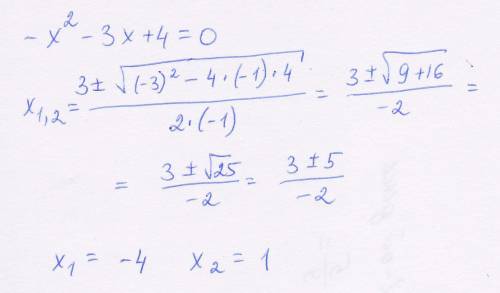 -x² - 3x + 4 = 0
x₁,₂ = (3 ± √((-3)² - 4·(-1)·4)) / (2·(-1)) = (3 ± √(9+16)) / (-2) =
= (3 ± √25) / (-2) = (3 ± 5) / (-2)
x₁ = -4 x₂ = 1